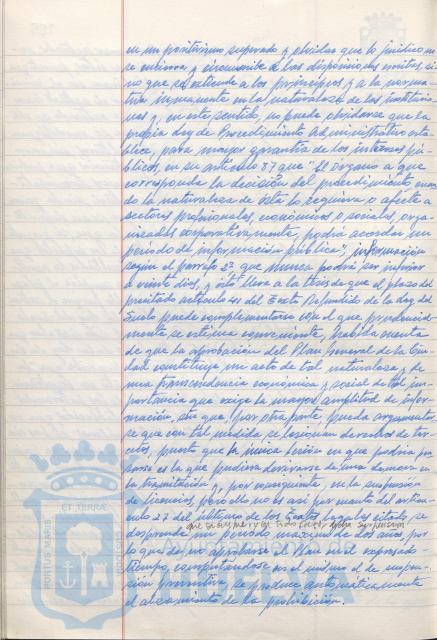 en un positivismo superado y olvidar que lo jurídico no
se entierra y circunscribe a las disposiciones escritas, si-
no que se extiende a los principios y a la norma-
tiva inmanente en la naturaleza de las institucio-
nes y, en este sentido, no puede olvidarse que la
propia Ley de Procedimiento Administrativo esta-
blece, para mayor garantía de los intereses pú-
blicos, en su artículo 87 que "El órgano a que
corresponda la decisión del procedimiento cuan-
do la naturaleza de éste lo requiera o afecte a
sectores profesionales, económicos o sociales, orga-
nizados corporativamente, podrá acordar un
período de información pública", información
según el párrafo 2º que nunca podrá ser inferior
a veinte días, y ésto lleva a la tesis de que el plazo del
precitado artículo 41 del Texto Refundido de la Ley del
Suelo puede complementarse con el que prudencial-
mente se estime conveniente, habida cuenta
de que la aprobación del Plan General de la Ciu-
dad constituye un acto de tal naturaleza y de
una trascendencia económica y social de tal im-
portancia que exige la mayor amplitud de infor-
mación, sin que, por otra parte, pueda argumentar-
se que con tal medida se lesionan derechos de ter-
ceros, puesto que la única lesión en que podría pen-
sarse es la que pudiera derivarse de una demora en
la tramitación y, por consiguiente, en la suspensión
de licencias, pero ello no es así por cuanto del artícu-
lo 27 del último de los Textos legales citados se
que se asigna, en todo caso, dicha suspensión
desprende un período máximo de dos años, por
lo que de no aprobarse el Plan en el expresado
tiempo, computándose en el mismo el de suspen-
sión preventiva, se produce automáticamente
el alzamiento de la prohibición.
ET TERRAE
PORTUS MARIS
CUSTODIA
HUELVA